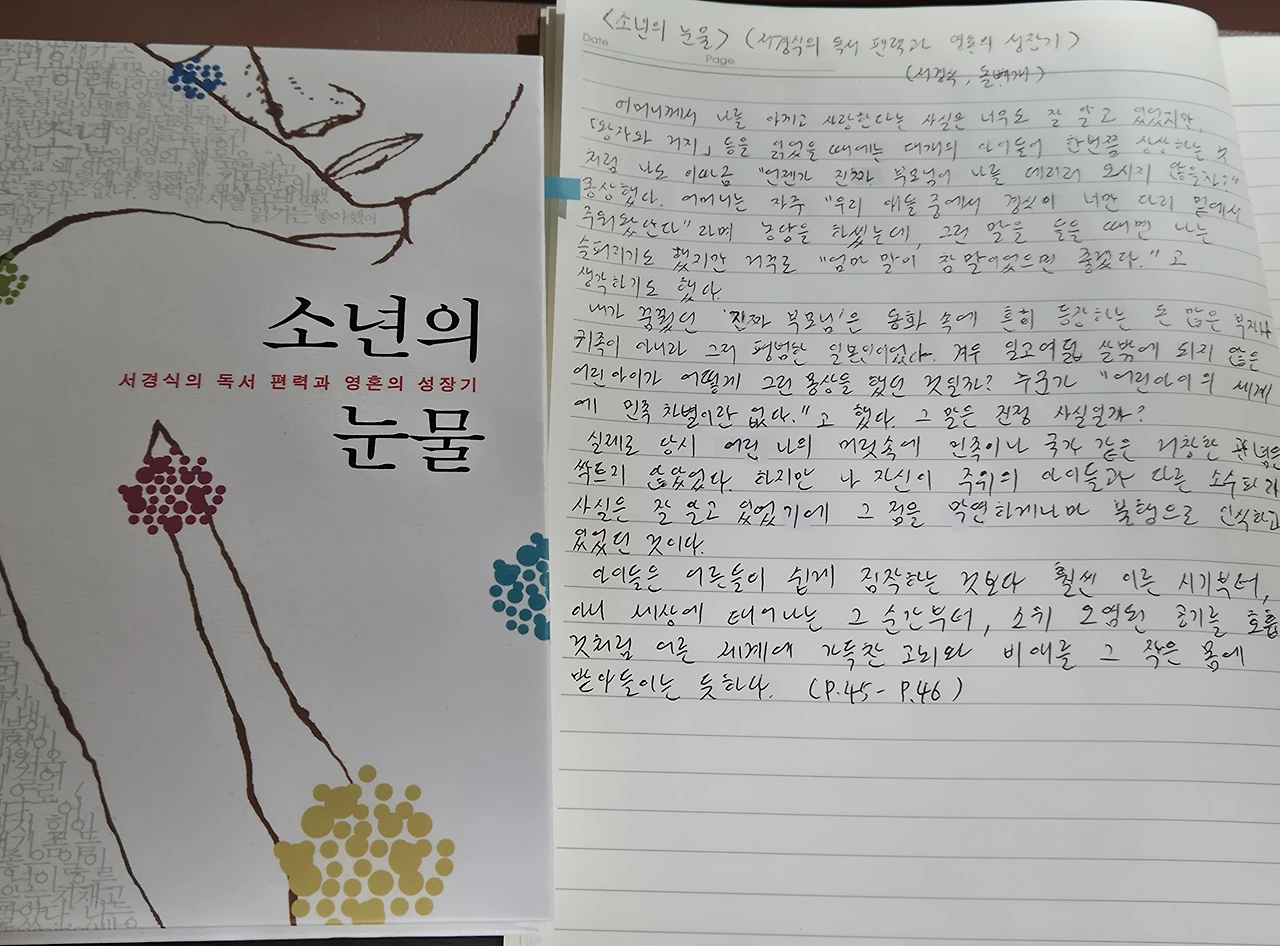 소년의
서경식의 독서 편력과 영혼의 성장기
눈물
<소년의 눈물> (서경식의 독서 편력과 영혼의 성장기)
Date.
Page.
(서경식, 돌베개)
어머니께서 나를 아끼고 사랑한다는 사실은 너무도 잘 알고 있었지만,
「왕자와 거지」 등을 읽었을 때에는 대개의 아이들이 한번쯤 상상하는 것
처럼 나도 이따금 "언젠가 진짜 부모님이 나를 데리러 오시지 않을까?"
몽상했다. 어머니는 자주 "우리 애들 중에서 경식이 너만 다리 밑에서
주워왔단다" 라며 농담을 하셨는데, 그런 말을 들을 때면 나는
슬퍼지기도 했지만 거꾸로 "엄마 말이 참말이었으면 좋겠다." 고
생각하기도 했다.
내가 꿈꿨던 '진짜 부모님'은 동화 속에 흔히 등장하는 돈 많은 부자나
귀족이 아니라 그저 평범한 일본인이었다. 겨우 일고여덟 살밖에 되지 않은
어린 아이가 어떻게 그런 몽상을 했던 것일까? 누군가 "어린아이의 세계
에 민족 차별이란 없다." 고 했다. 그 말은 진정 사실일까?
실제로 당시 어린 나의 머릿속에 민족이나 국가 같은 거창한 관념은
싹트지 않았었다. 하지만 나 자신이 주위의 아이들과 다른 소수파라
사실은 잘 알고 있었기에 그 점을 막연하게나마 불행으로 인식하고
있었던 것이다.
아이들은 어른들이 쉽게 짐작하는 것보다 훨씬 이른 시기부터,
아니 세상에 태어나는 그 순간부터, 소위 오염된 공기를 호흡
것처럼 어른 세계에 가득찬 고뇌와 비애를 그 작은 몸에
받아들이는 듯하다. (P.45- P.46)